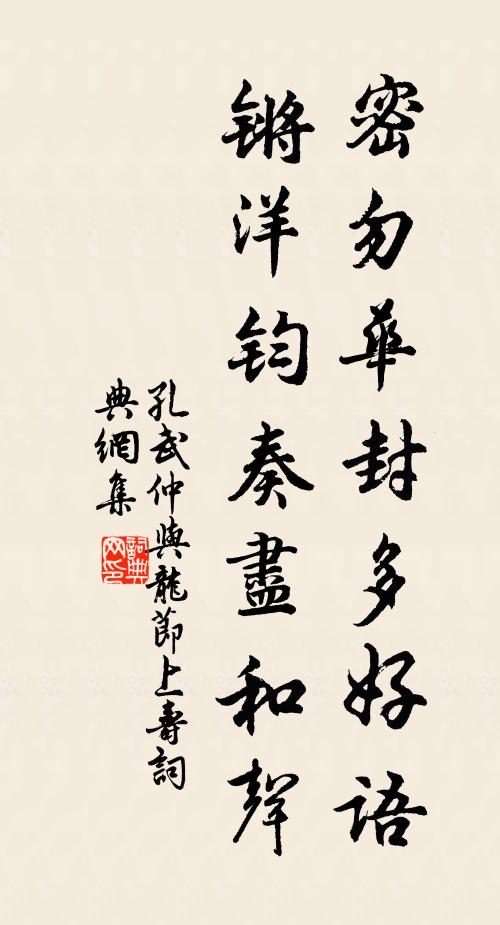 密勿華封多好語
鏘洋鈞奏盡和聲
孔武仲與龍節上壽詞
典網集
詞典網印